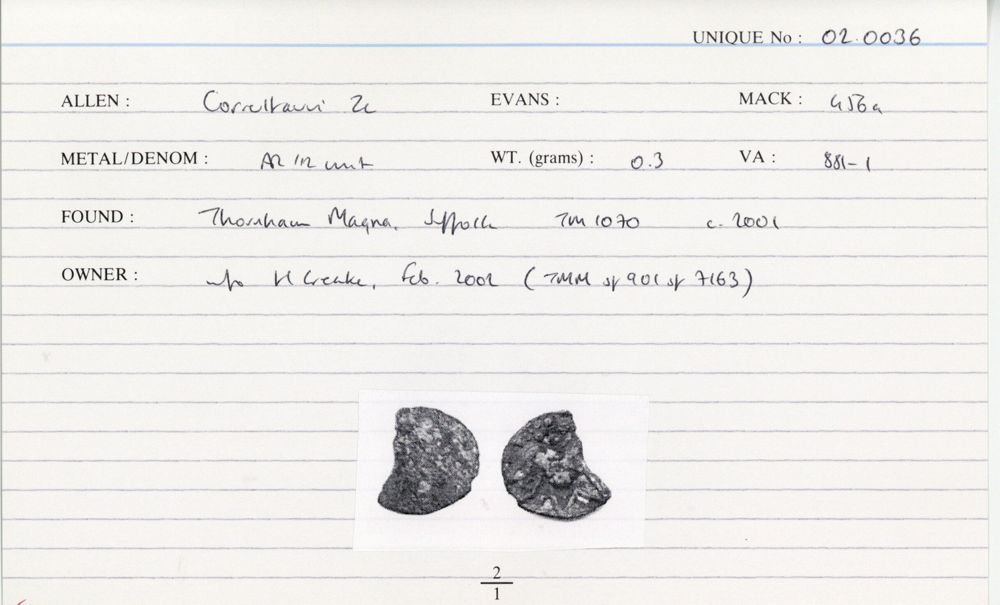 UNIQUE No : 02.0036
ALLEN : Correltauvi 2c EVANS : MACK : 456a
METAL/DENOM : AR 1/2 unit WT. (grams) : 0.3 VA : 881-1
FOUND : Thornham Magna, Suffolk TM 1070 c. 2001
OWNER : H Creake, Feb. 2002 (TMM sf 901 sf 7163)
2
1